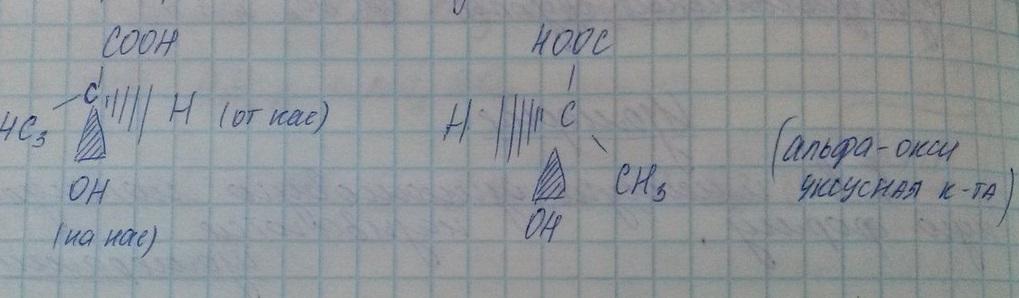 COOH
HOOC
C
H3C
H (от нас)
H
C
OH
CH3
OH
(на нас)
(альфа-окси
уксусная к-та)